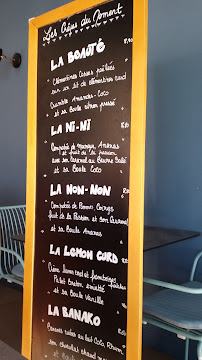 Les Crêpes du Moment
LA BEAUTÉ
Clémentines Corses poêlées
sur un lit de clémentines curd
Crumble Amandes-Coco
et sa Boule citron pressé
LA NI-NI
Compotée de Ananas
et fruit de la passion
avec son Caramel au Beurre Salé
et sa Boule Coco
LA NON-NON
Compotée de Pommes,
fruit de la Passion et son Caramel
et sa Boule Amande
LA LEMON CURD
Crème lemon curd et framboises
Palet breton
et sa Boule Vanille
LA BANAKO
Bananes
son chocolat chaud